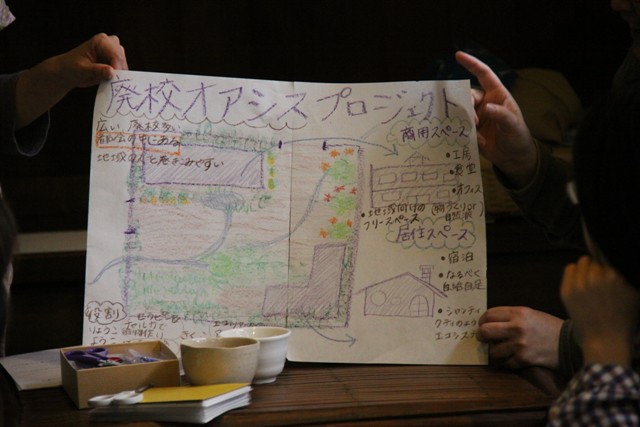 廃校オアシスプロジェクト
広い 廃校多い
都心の中にある
地域の人を巻きこみやすい
商用スペース
・工房
・教室
・オフィス
・地域向けの
フリースペース
居住スペース
・宿泊
・なるべく
自給自足
・シャンティ
クティのような
エコシステム
役割
りょうこ